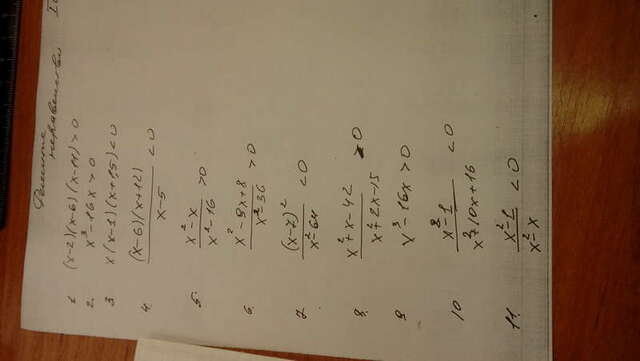 Решите
неравенство
1. (x-2)(x-6)(x-11)>0
2. x³-16x>0
3 x(x-1)(x+1,5)<0
4. (x-6)(x+12)/(x-5) <0
5. (x²-x)/(x²-16) >0
6. (x²-9x+8)/(x²-36) >0
7. (x-7)²/(x²-64) <0
8. (x²+x-42)/(x²+2x-15) >0
9 x³-16x>0
10 (x²-1)/(x²+10x+16) <0
11. (x²-1)/(x²-x) <0